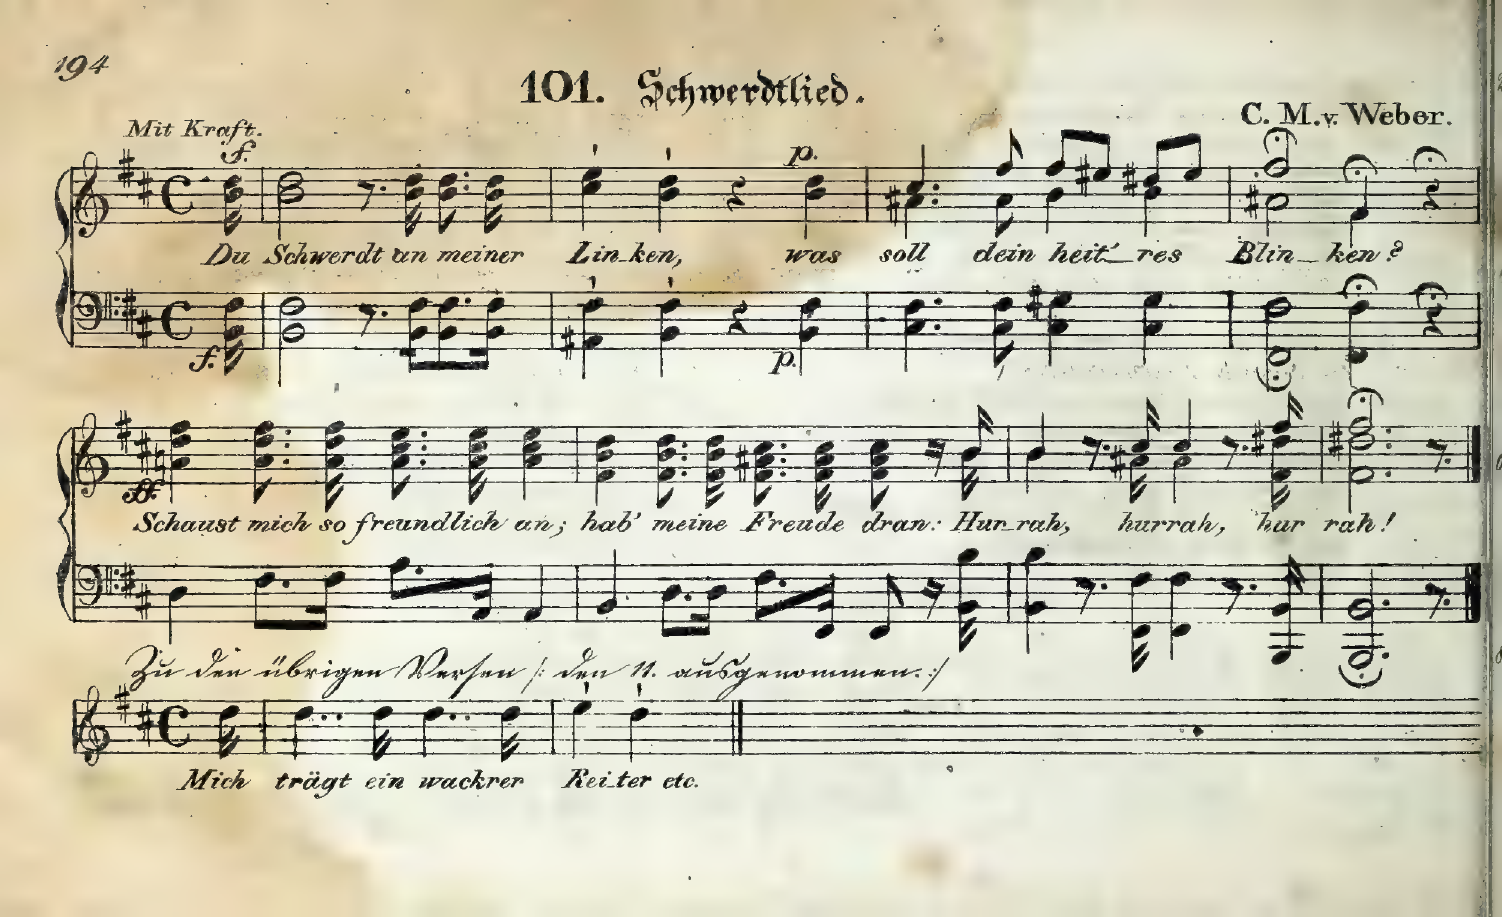 194
101. Schwerdtlied.
C. M. v. Weber.
Mit Kraft.
f.
p.
Du Schwerdt an meiner Lin_ken, was soll dein heit'_res Blin_ken?
f.
p.
ff.
Schaust mich so freundlich an; hab' meine Freude dran: Hur_rah, hurrah, hur rah!
Zu den übrigen Versen /: den 11. ausgenommen. :/
Mich trägt ein wackrer Rei_ter etc.